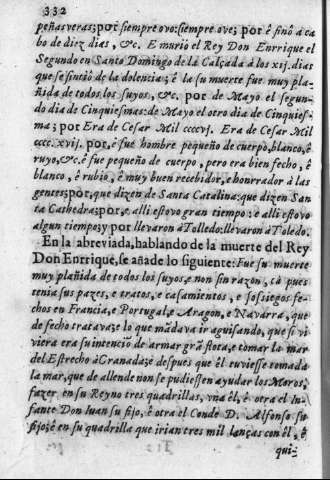 332
peñasveras; por siempre ovo: siempre ove; por é finò à ca
bo de diez dias, &c. E murio el Rey Don Enrrique el
Segundo en Santo Domingo de la Calçada à los xij. dias
que se sintiò de la dolencia; é la su muerte fue muy pla-
ñida de todos los suyos, &c. por de Mayo el segun-
do dia de Cinquiesmas: de Mayo el otro dia de Cinquies-
ma; por Era de Cesar Mil ccccvj. Era de Cesar Mil
cccc.xvij. por, é fue hombre pequeño de cuerpo, blanco, é
ruyo, &c. é fue pequeño de cuerpo, pero era bien fecho, é
blanco, é rubio, é muy buen recebidor, e honrrador à las
gentes; por, que dizen de Santa Catalina: que dizen San
ta Cathedra; por, e alli estovo gran tiempo: e alli estovo
algun tiempo; y por llevaron à Tolledo: llevaron à Toledo.
En la abreviada, hablando de la muerte del Rey
Don Enrrique, se añade lo siguiente: Fue su muerte
muy plañida de todos los suyos, e non sin razon, cà pues
tenia sus pazes, e tratos, e casamientos, e sossiegos fe-
chos en Francia, e Portugal, e Aragon, e Navarra, que
de fecho tratava, e lo que mãdava ir aguisando, que si vi
viera era su intenciõ de armar grã flota, e tomar la mar
del Estrecho à Granada; e despues que èl tuviesse tomada
la mar, que de allende non se pudiessen ayudar los Moros,
fazer en su Reyno tres quadrillas, vna èl, é otra el In-
fante Don Iuan su fijo, é otra el Conde D. Alfonso su
fijo, é en su quadrilla que irian tres mil lanças con èl, é
qui-